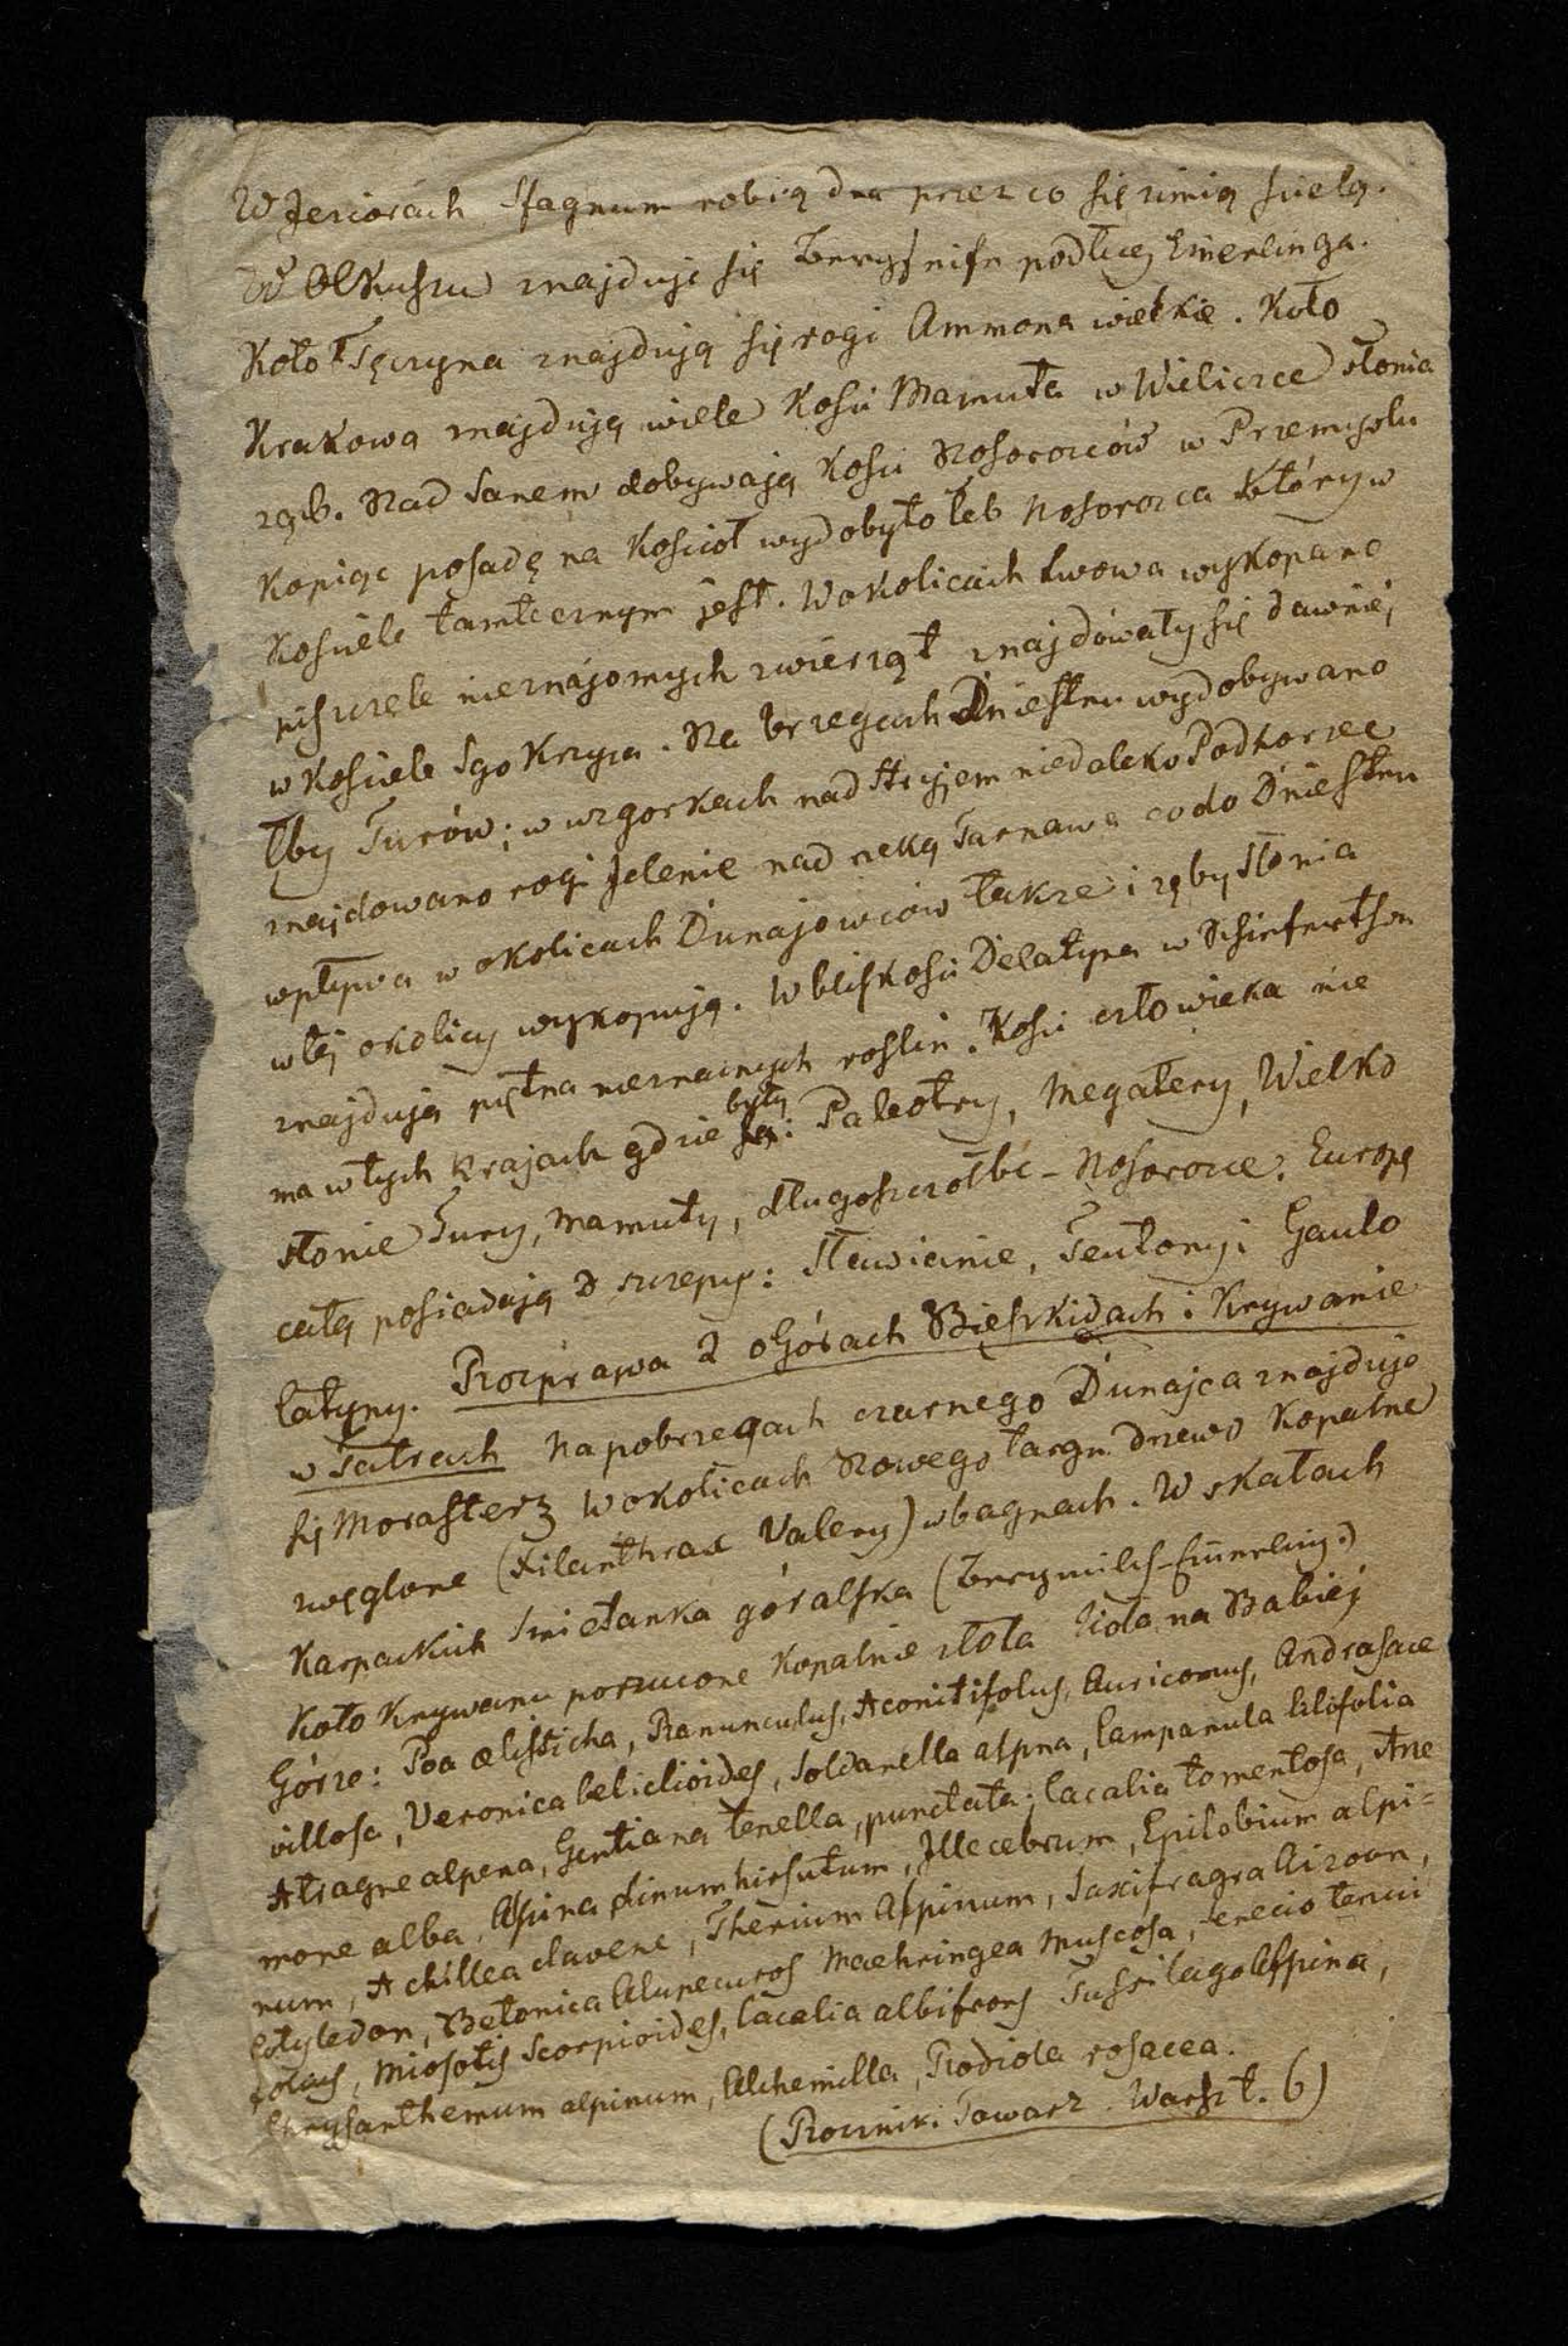 W Jeziorach Sfagnum robią dna przez co się zimią sielą.
W Olkuszu znajduje się Bergseife podług Emerlinga.
Koło Tęczyna znajdują się rogi Ammona wielkie. Koło
Krakowa znajdują wiele Kości Mamuta w Wieliczce słonia
ząb. Nad Sanem dobywają Kości Nosorożców w Przemyslu
Kopiąc posadę na Kościoł wydobyto łeb Nosorożca który w
Kościele tamtecznym jest. W okolicach Lwowa wykopane
piszczele nieznajomych zwierząt znajdowały się dawniej
w Kościele Sgo Krzyża. Na brzegach Dniestru wydobywano
Łby Turów; w wzgorkach nad Stryjem niedaleko Podhorzec
znajdowano rogi Jelenie nad rzeką Tarnawa co do Dniestru
wpływa w okolicach Dunajowców także i zęby słonia
w tej okolicy wykopują. W bliskości Delatyna w Schieferthon
znajdują piętna nieznanych roslin. Kości człowieka nie
ma w tych Krajach gdzie były: Paleotry, Megatery, Wielko
słonie Tury, Mamuty, długoszczołbe-Nosorożce. Europę
całą posiadają 3 szczepy: Sławianie, Teutony i Gaulo
latyny. Rozprawa 2 o Górach Bieskidach i Krywanie
w Tatrach Na pobrzegach czarnego Dunajca znajduje
się Morasterz w okolicach Nowego targu drzewo Kopalne
zwęglone (Xilanthrax Valery) w bagnach. W skałach
Karpackich Smietanka góralska (Bergmilch-Emerling.)
Koło Krywanu porzucone Kopalnie złota Zioła na Babiej
Górze: Poa disticha, Ranunculus, Aconitifolus, Auricomus, Androsace
villosa, Veronica belidioides, Soldanella alpina, Campanula lilifolia
Atragne alpena, Gentiana tenella, punctata; Cacalia tomentosa, Ane
mone alba, Alpina Linum hirsutum, Illecebrum, Epilobium alpi=
num, Achillea clavene, Thesium Alpinum, Saxifragra Aizoon,
Cotyledon, Betonica Alopecuros Maehringea Muscosa, Senecio tenui
folius, Miosotis Scorpioides, Cacalia albifrons Tussilago Alpina,
Chrysanthemum alpinum, Alchemilla, Rodiola rosacea.
(Roczniki Towarz. Warsz t. 6)